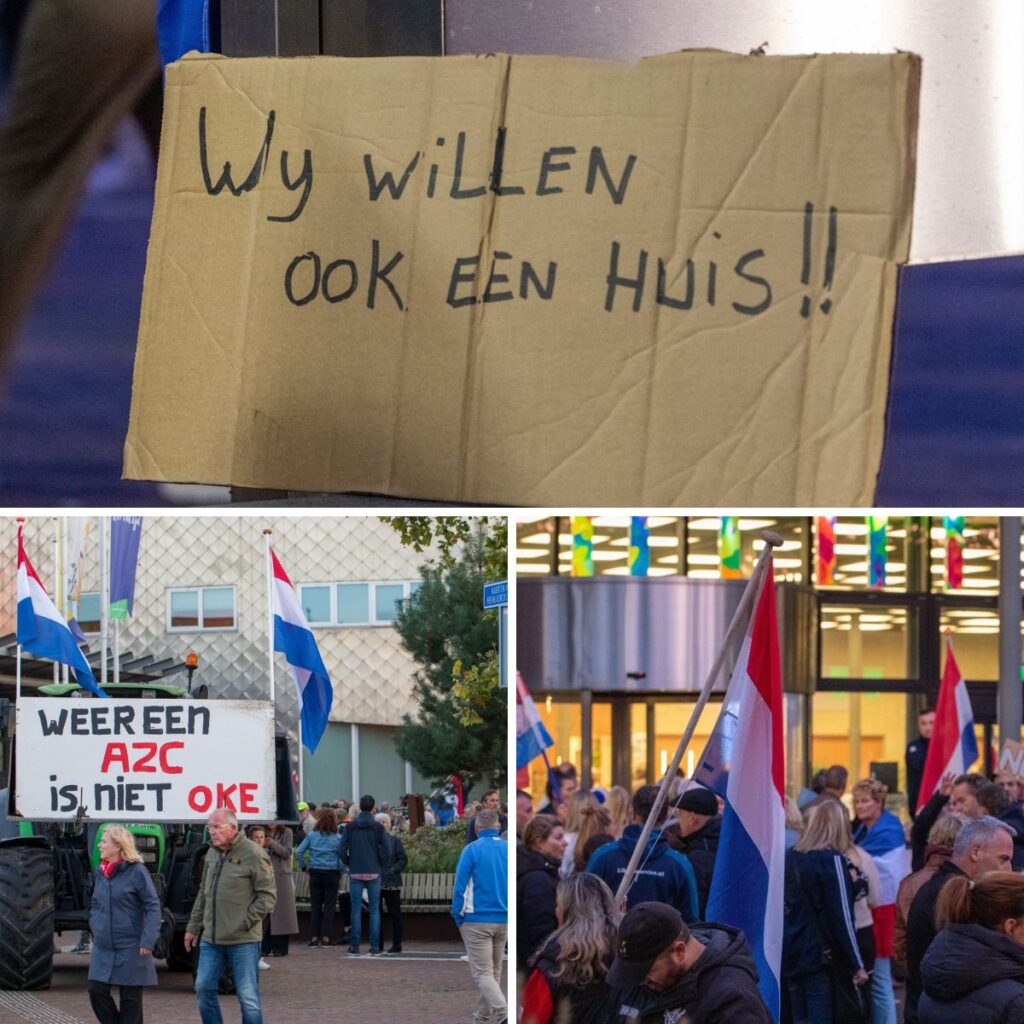 Wy willen
ook een huis!!
WEER EEN
AZC
is NIET OKE